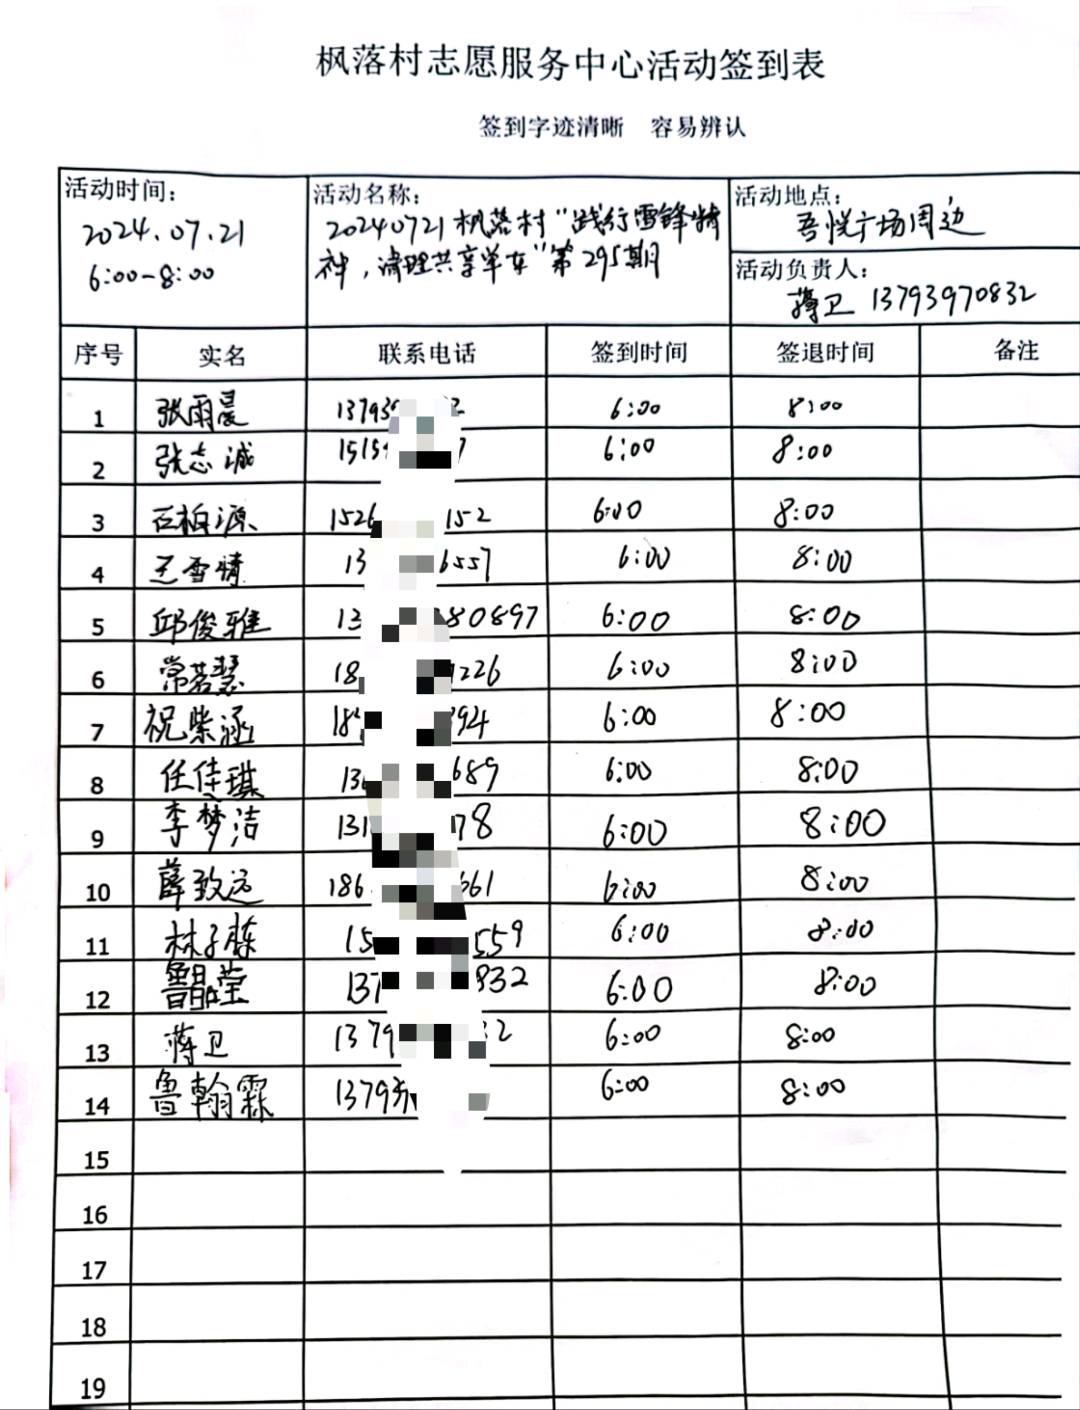 枫落村志愿服务中心活动签到表
签到字迹清晰 容易辨认
活动时间：
2024.07.21
6:00-8:00
活动名称：
20240721枫落村“践行雷锋精
神，清理共享单车”第295期
活动地点：
吾悦广场周边
活动负责人：
蒋卫 13793970832
序号 实名 联系电话 签到时间 签退时间 备注
1 张雨晨 13793 6:00 8:00
2 张志诚 1515 7 6:00 8:00
3 石柏源 1526 152 6:00 8:00
4 王雪情 13 6557 6:00 8:00
5 邱俊雅 13 80897 6:00 8:00
6 常若慧 18 226 6:00 8:00
7 祝紫涵 18 94 6:00 8:00
8 任佳琪 13 689 6:00 8:00
9 李梦洁 131 78 6:00 8:00
10 薛致远 186 661 6:00 8:00
11 林子栋 15 559 6:00 8:00
12 鲁晶莹 137 832 6:00 8:00
13 蒋卫 1379 2 6:00 8:00
14 鲁翰霖 13793 6:00 8:00
15
16
17
18
19